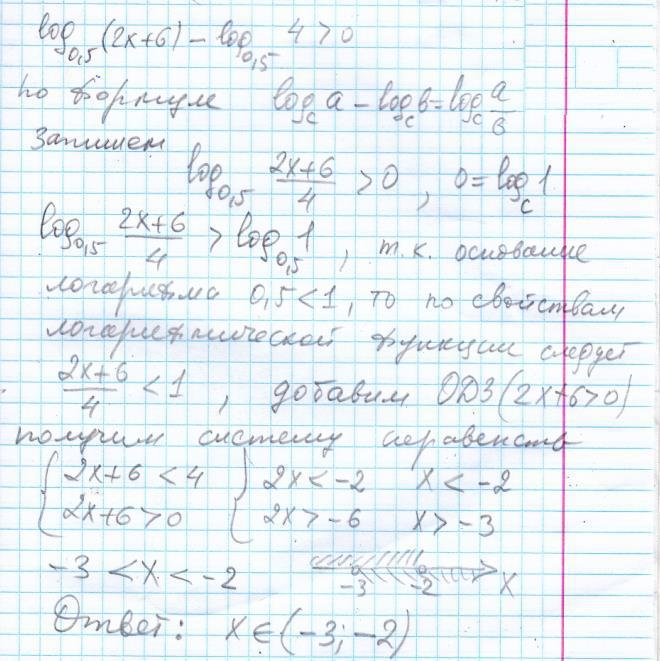 log₀,₅(2x+6) - log₀,₅ 4 > 0
по формуле log_c a - log_c в = log_c a/в
Запишем
log₀,₅ (2x+6)/4 > 0, 0 = log_c 1
log₀,₅ (2x+6)/4 > log₀,₅ 1, т.к. основание
логарифма 0,5 < 1, то по свойствам
логарифмической функции следует
(2x+6)/4 < 1, добавим ОДЗ (2x+6>0)
получим систему неравенств
{ 2x+6 < 4 { 2x < -2 x < -2
{ 2x+6 > 0 { 2x > -6 x > -3
-3 < x < -2 -3 -2 x
Ответ: x ∈ (-3; -2)